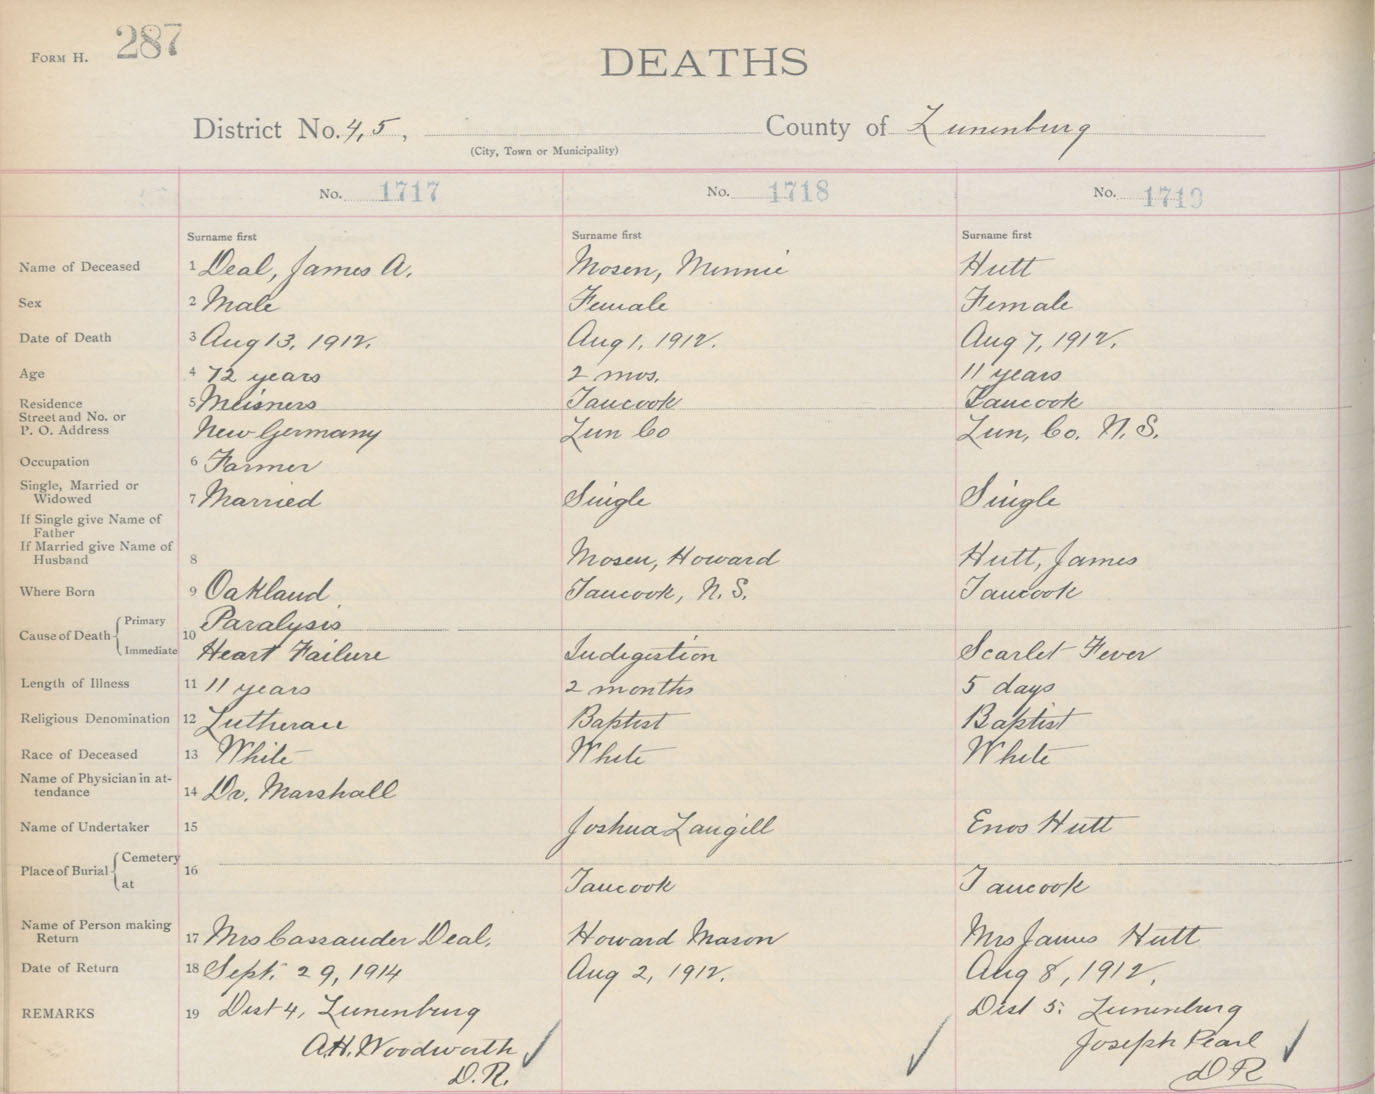 FORM H. 287
DEATHS
District No. 4, 5, County of Lunenburg
(City, Town or Municipality)
No. 1717 No. 1718 No. 1719
Surname first Surname first Surname first
Name of Deceased 1 Deal, James A. Mosen, Minnie Hutt
Sex 2 Male Female Female
Date of Death 3 Aug 13, 1912. Aug 1, 1912. Aug 7, 1912.
Age 4 72 years 2 mos. 11 years
Residence 5 Meisners Tancook Tancook
Street and No. or
P. O. Address New Germany Lun Co Lun, Co. N. S.
Occupation 6 Farmer
Single, Married or
Widowed 7 Married Single Single
If Single give Name of
Father
If Married give Name of
Husband 8 Mosen, Howard Hutt, James
Where Born 9 Oakland Tancook, N. S. Tancook
Cause of Death Primary 10 Paralysis
Immediate Heart Failure Indigestion Scarlet Fever
Length of Illness 11 11 years 2 months 5 days
Religious Denomination 12 Lutheran Baptist Baptist
Race of Deceased 13 White White White
Name of Physician in at-
tendance 14 Dr. Marshall
Name of Undertaker 15 Joshua Langill Enos Hutt
Place of Burial Cemetery 16
at Tancook Tancook
Name of Person making
Return 17 Mrs Cassander Deal. Howard Mason Mrs James Hutt
Date of Return 18 Sept. 29, 1914 Aug 2, 1912. Aug 8, 1912.
REMARKS 19 Dist 4, Lunenburg Dist 5: Lunenburg
A.H. Woodworth Joseph Pearl
D.R. D R